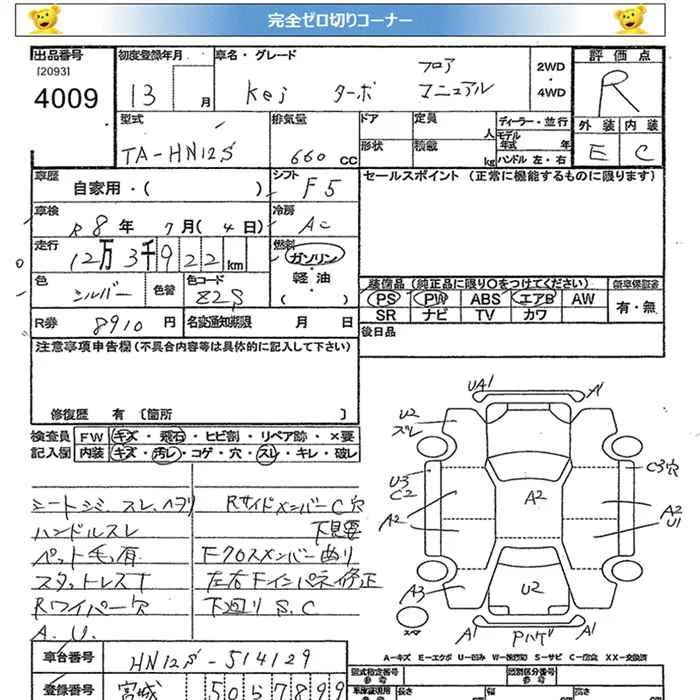 完全ゼロ切りコーナー
出品番号
[2093]
4009
初度登録年月
13 月
車名・グレード
Kei ターボ フロア マニュアル
2WD
・
4WD
評価点
R
外装 内装
E C
型式
TA-HN12S
排気量
660 CC
ドア
形状
定員
人
積載
kg
ディーラー・並行
モデル
年式 年
ハンドル 左・右
車歴
自家用・( )
シフト
F5
セールスポイント (正常に機能するものに限ります)
車検
R8年 7月(4日)
冷房
AC
走行
12万3千922km
燃料
ガソリン
・
軽油
( )
色
シルバー
色替
色コード
Z2S
装備品 (純正品に限り○をつけてください)
PS PW ABS エアB AW
SR ナビ TV カワ
新車保証書
有・無
R券 8910 円
名変通知期限 月 日
後日品
注意事項申告欄 (不具合内容等は具体的に記入して下さい)
修復歴 有 [箇所 ]
検査員
記入欄
FW キズ・飛石・ヒビ割・リペア跡・×要
内装 キズ・汚レ・コゲ・穴・スレ・キレ・破レ
シートシミ、スレ、ヘタリ
ハンドルスレ
ペット毛有
スタットレスT
Rワイパー穴
A.U.
RサイドメンバーC穴
下見要
Fクロスメンバー曲り
左右Fインパネ修正
下廻りS.C
UA1
A1
U2
スレ
U3
C2
C3穴
A2
A2
A2
U1
A3
U2
スペア
A1
Pハゲ
A1
A-キズ E-エクボ U-凹み W-波打ち S-サビ C-腐食 XX-交換済
車台番号
HN12S-514129
登録番号
宮城 505 7899
型式指定番号
参考
類別区分番号
参考
車検証現車
長さ
幅
高さ